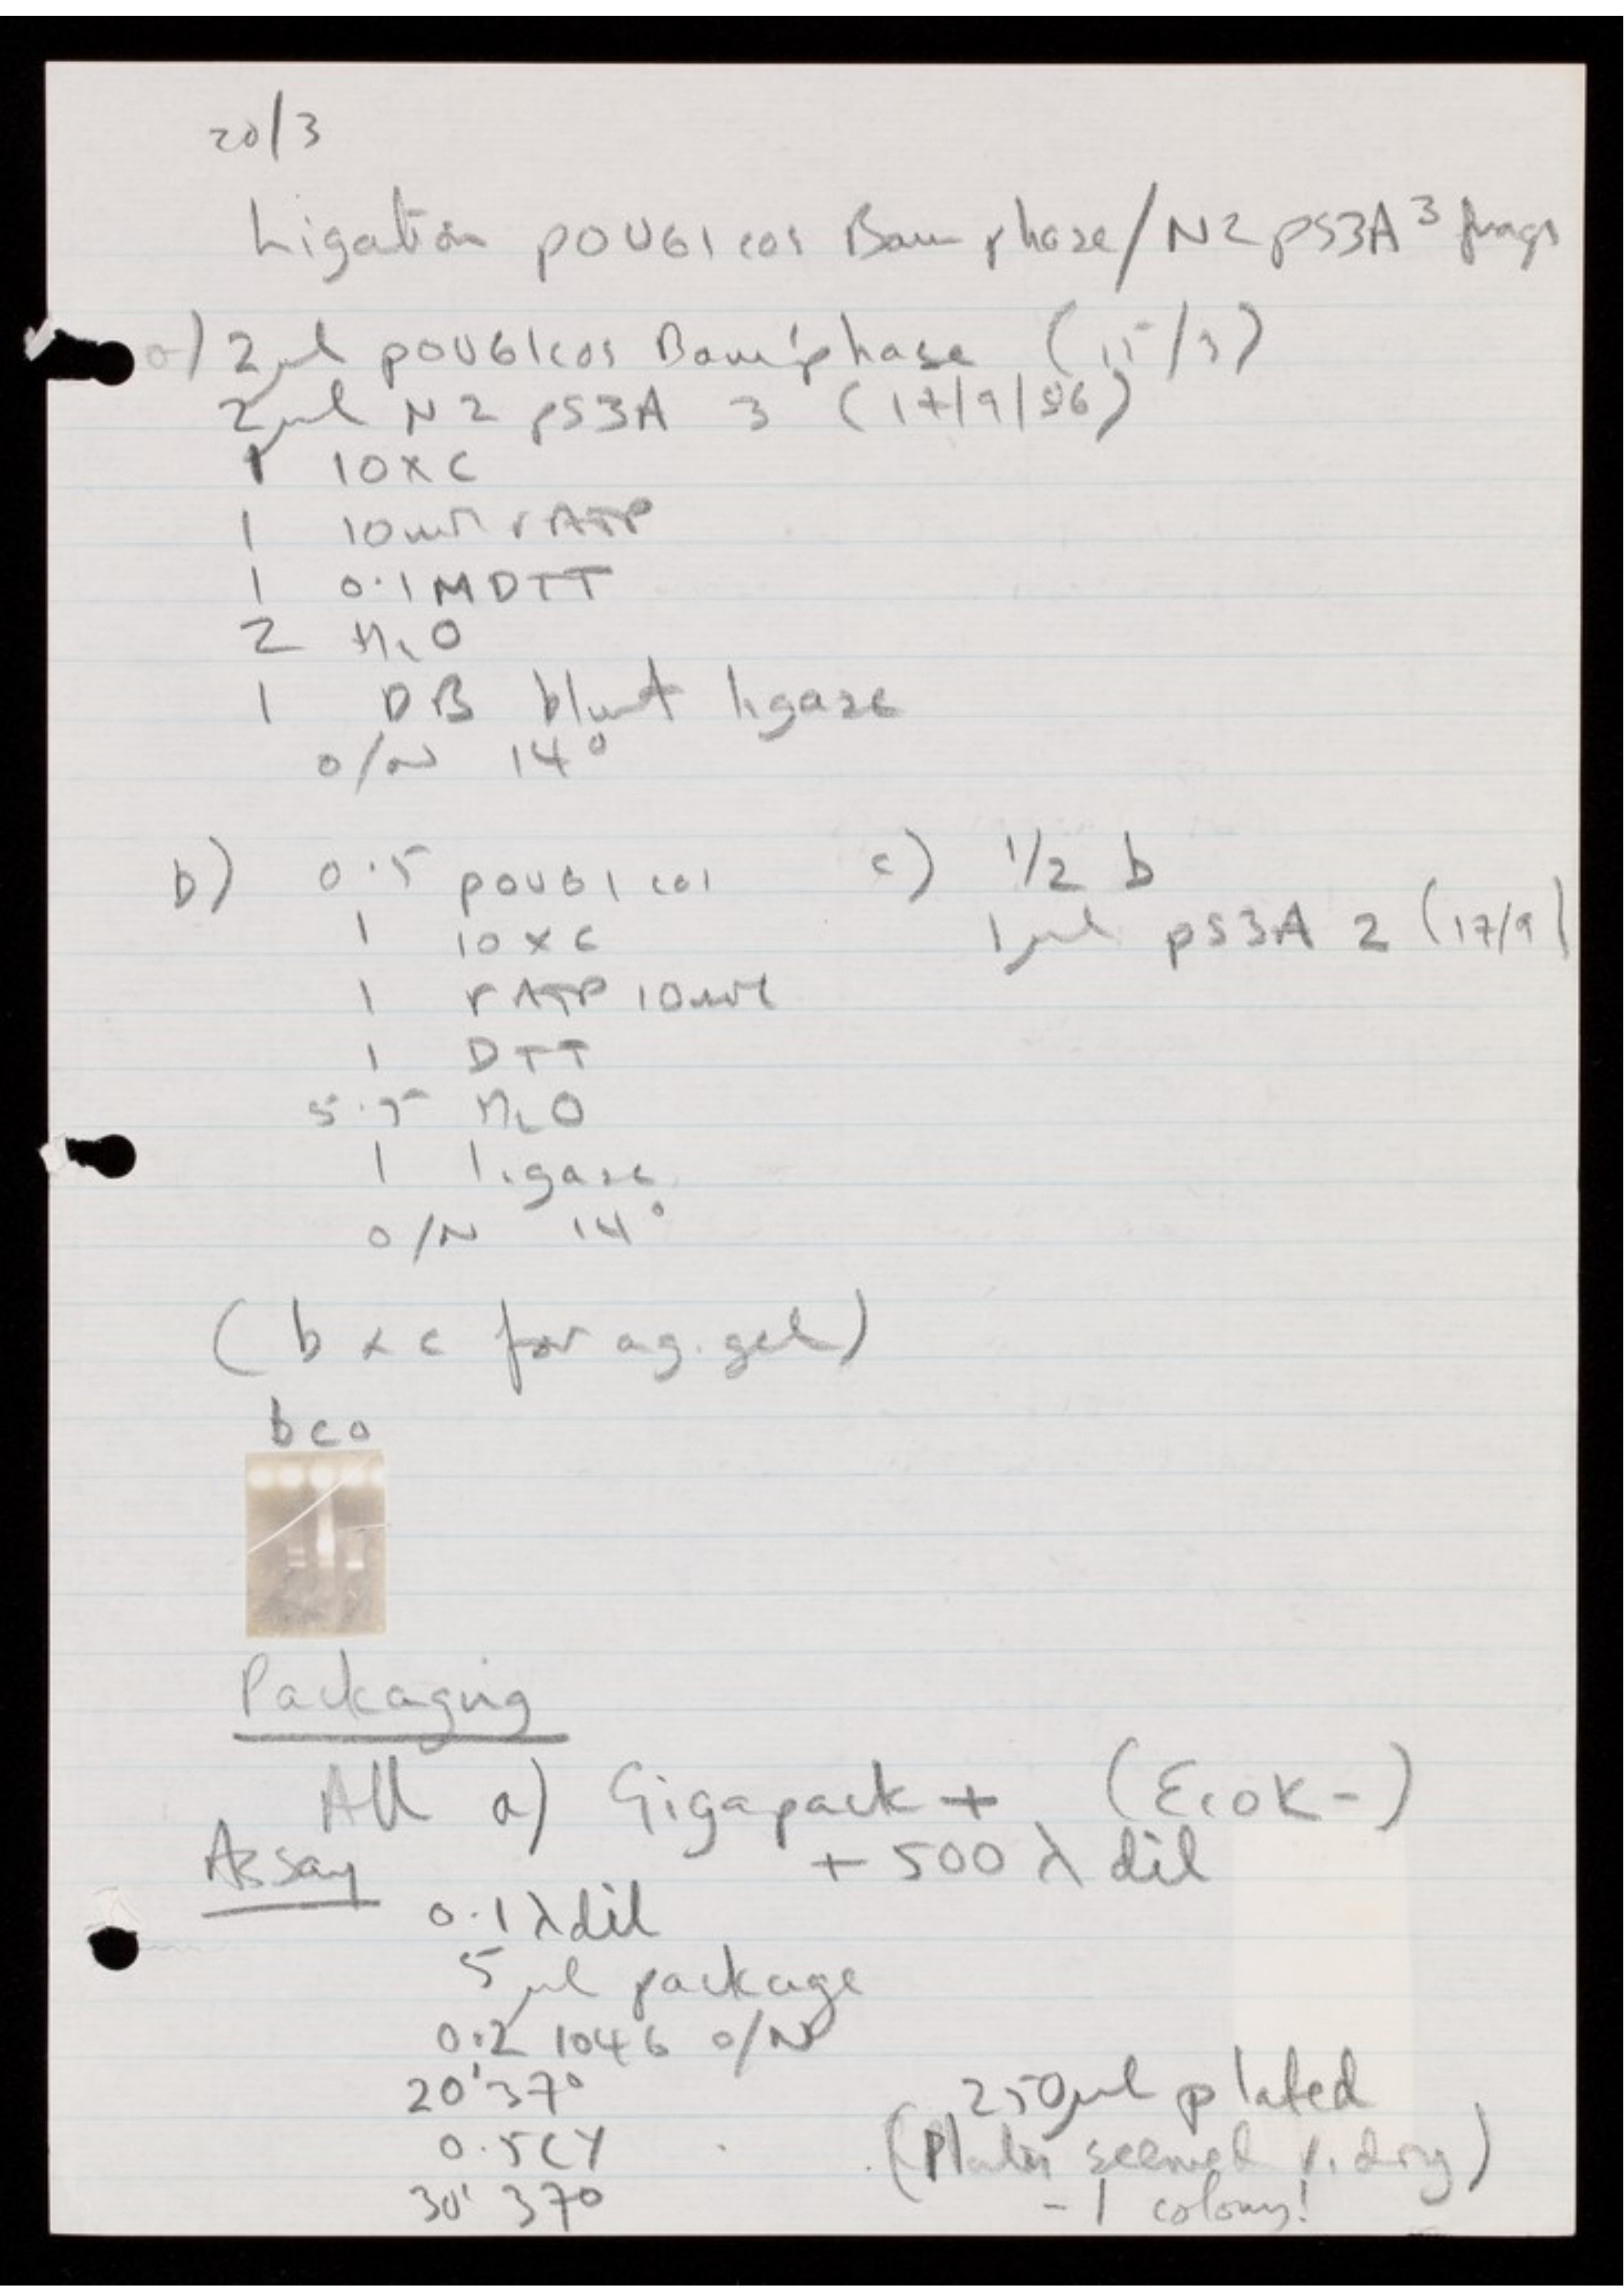 20/3
Ligation pOU61cos Bam phase/N2 pS3A 3 frags
a) 2μl pOU61cos Bam phase (15/3)
2μl N2 pS3A 3 (17/9/86)
1 10xC
1 10mM rATP
1 0.1M DTT
2 H2O
1 DB blunt ligase
o/N 14°
b) 0.5 pOU61cos
1 10xC
1 rATP 10mM
1 DTT
5.5 H2O
1 ligase
o/N 14°
c) 1/2 b
1μl pS3A 2 (17/9)
(b & c for ag. gel)
b c a
Packaging
All a) Gigapack + (EcoK-)
+ 500 λ dil
Assay
0.1 λ dil
5μl package
0.2 1046 o/N
20' 37°
0.5 CY
30' 37°
250μl plated
(Plates seemed v. dry)
- 1 colony!